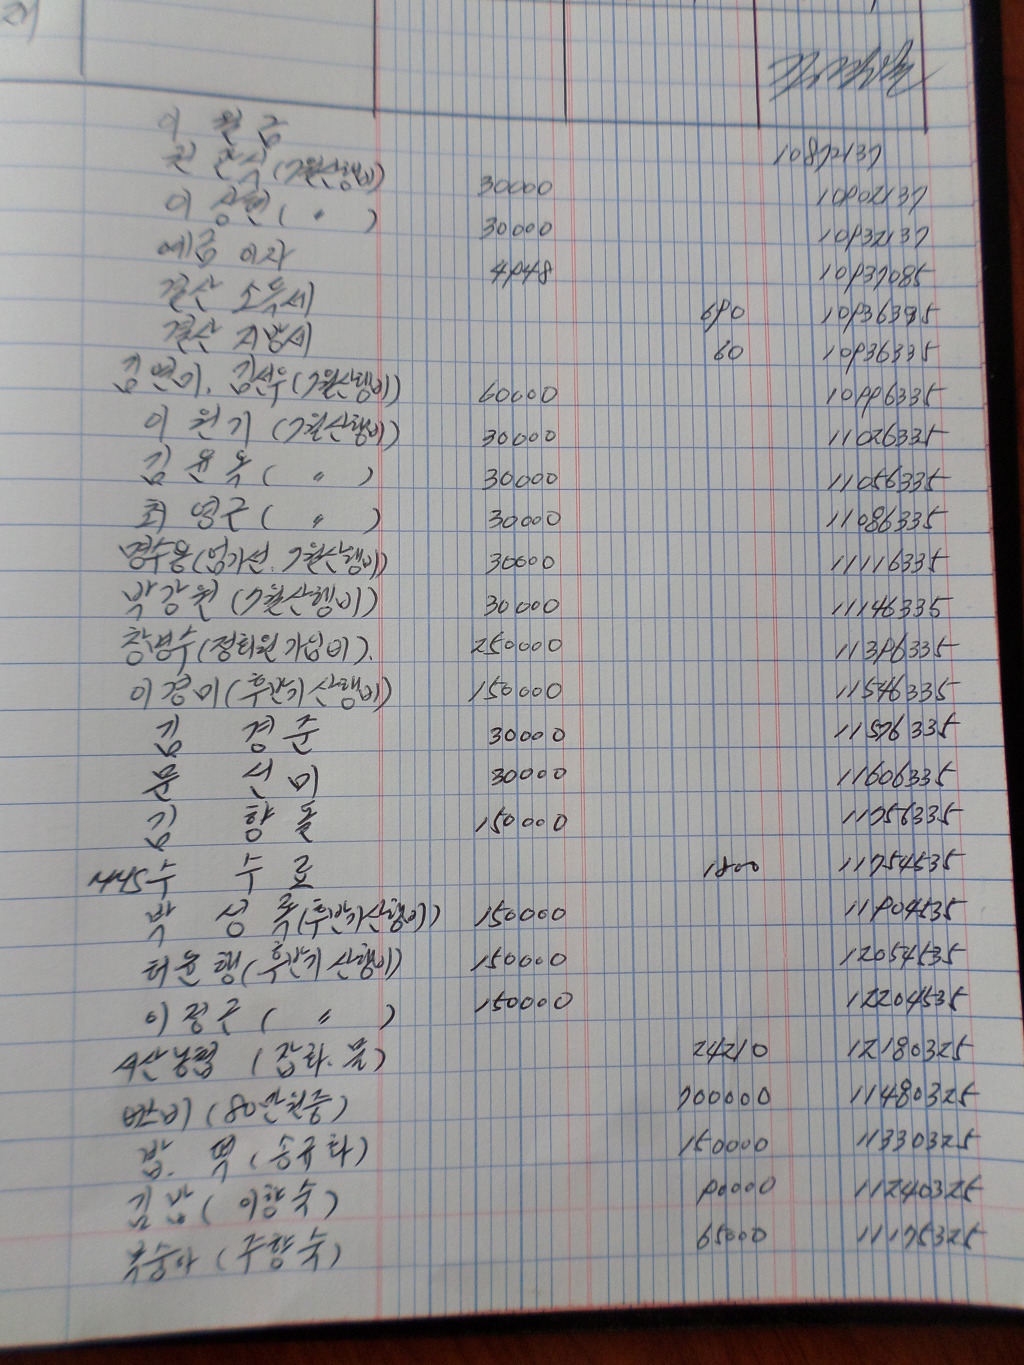 이 월 금 10872137
권 관식 (7월산행비) 30000 10902137
이 상현 ( 〃 ) 30000 10932137
예금 이자 4948 10937085
결산 소득세 690 10936395
결산 지방세 60 10936335
김연기. 김선우 (7월산행비) 60000 10996335
이 원기 (7월산행비) 30000 11026335
김 윤옥 ( 〃 ) 30000 11056335
최 영근 ( 〃 ) 30000 11086335
명수용 (엄가선. 7월산행비) 30000 11116335
박강원 (7월산행비) 30000 11146335
창병수 (정회원 가입비). 250000 11396335
이경미 (후반기 산행비) 150000 11546335
김 경준 30000 11576335
문 선미 30000 11606335
김 향돌 150000 11756335
수 수 료 1800 11754535
박 성 록 (후반기산행비) 150000 11904535
허윤행 (후반기 산행비) 150000 12054535
이정근 ( 〃 ) 150000 12204535
농협 (잡화. 물) 24210 12180325
버스비 (80만원중) 700000 11480325
밥. 떡 (송규화) 150000 11330325
김밥 (이향숙) 90000 11240325
복숭아 (주향숙) 65000 11175325